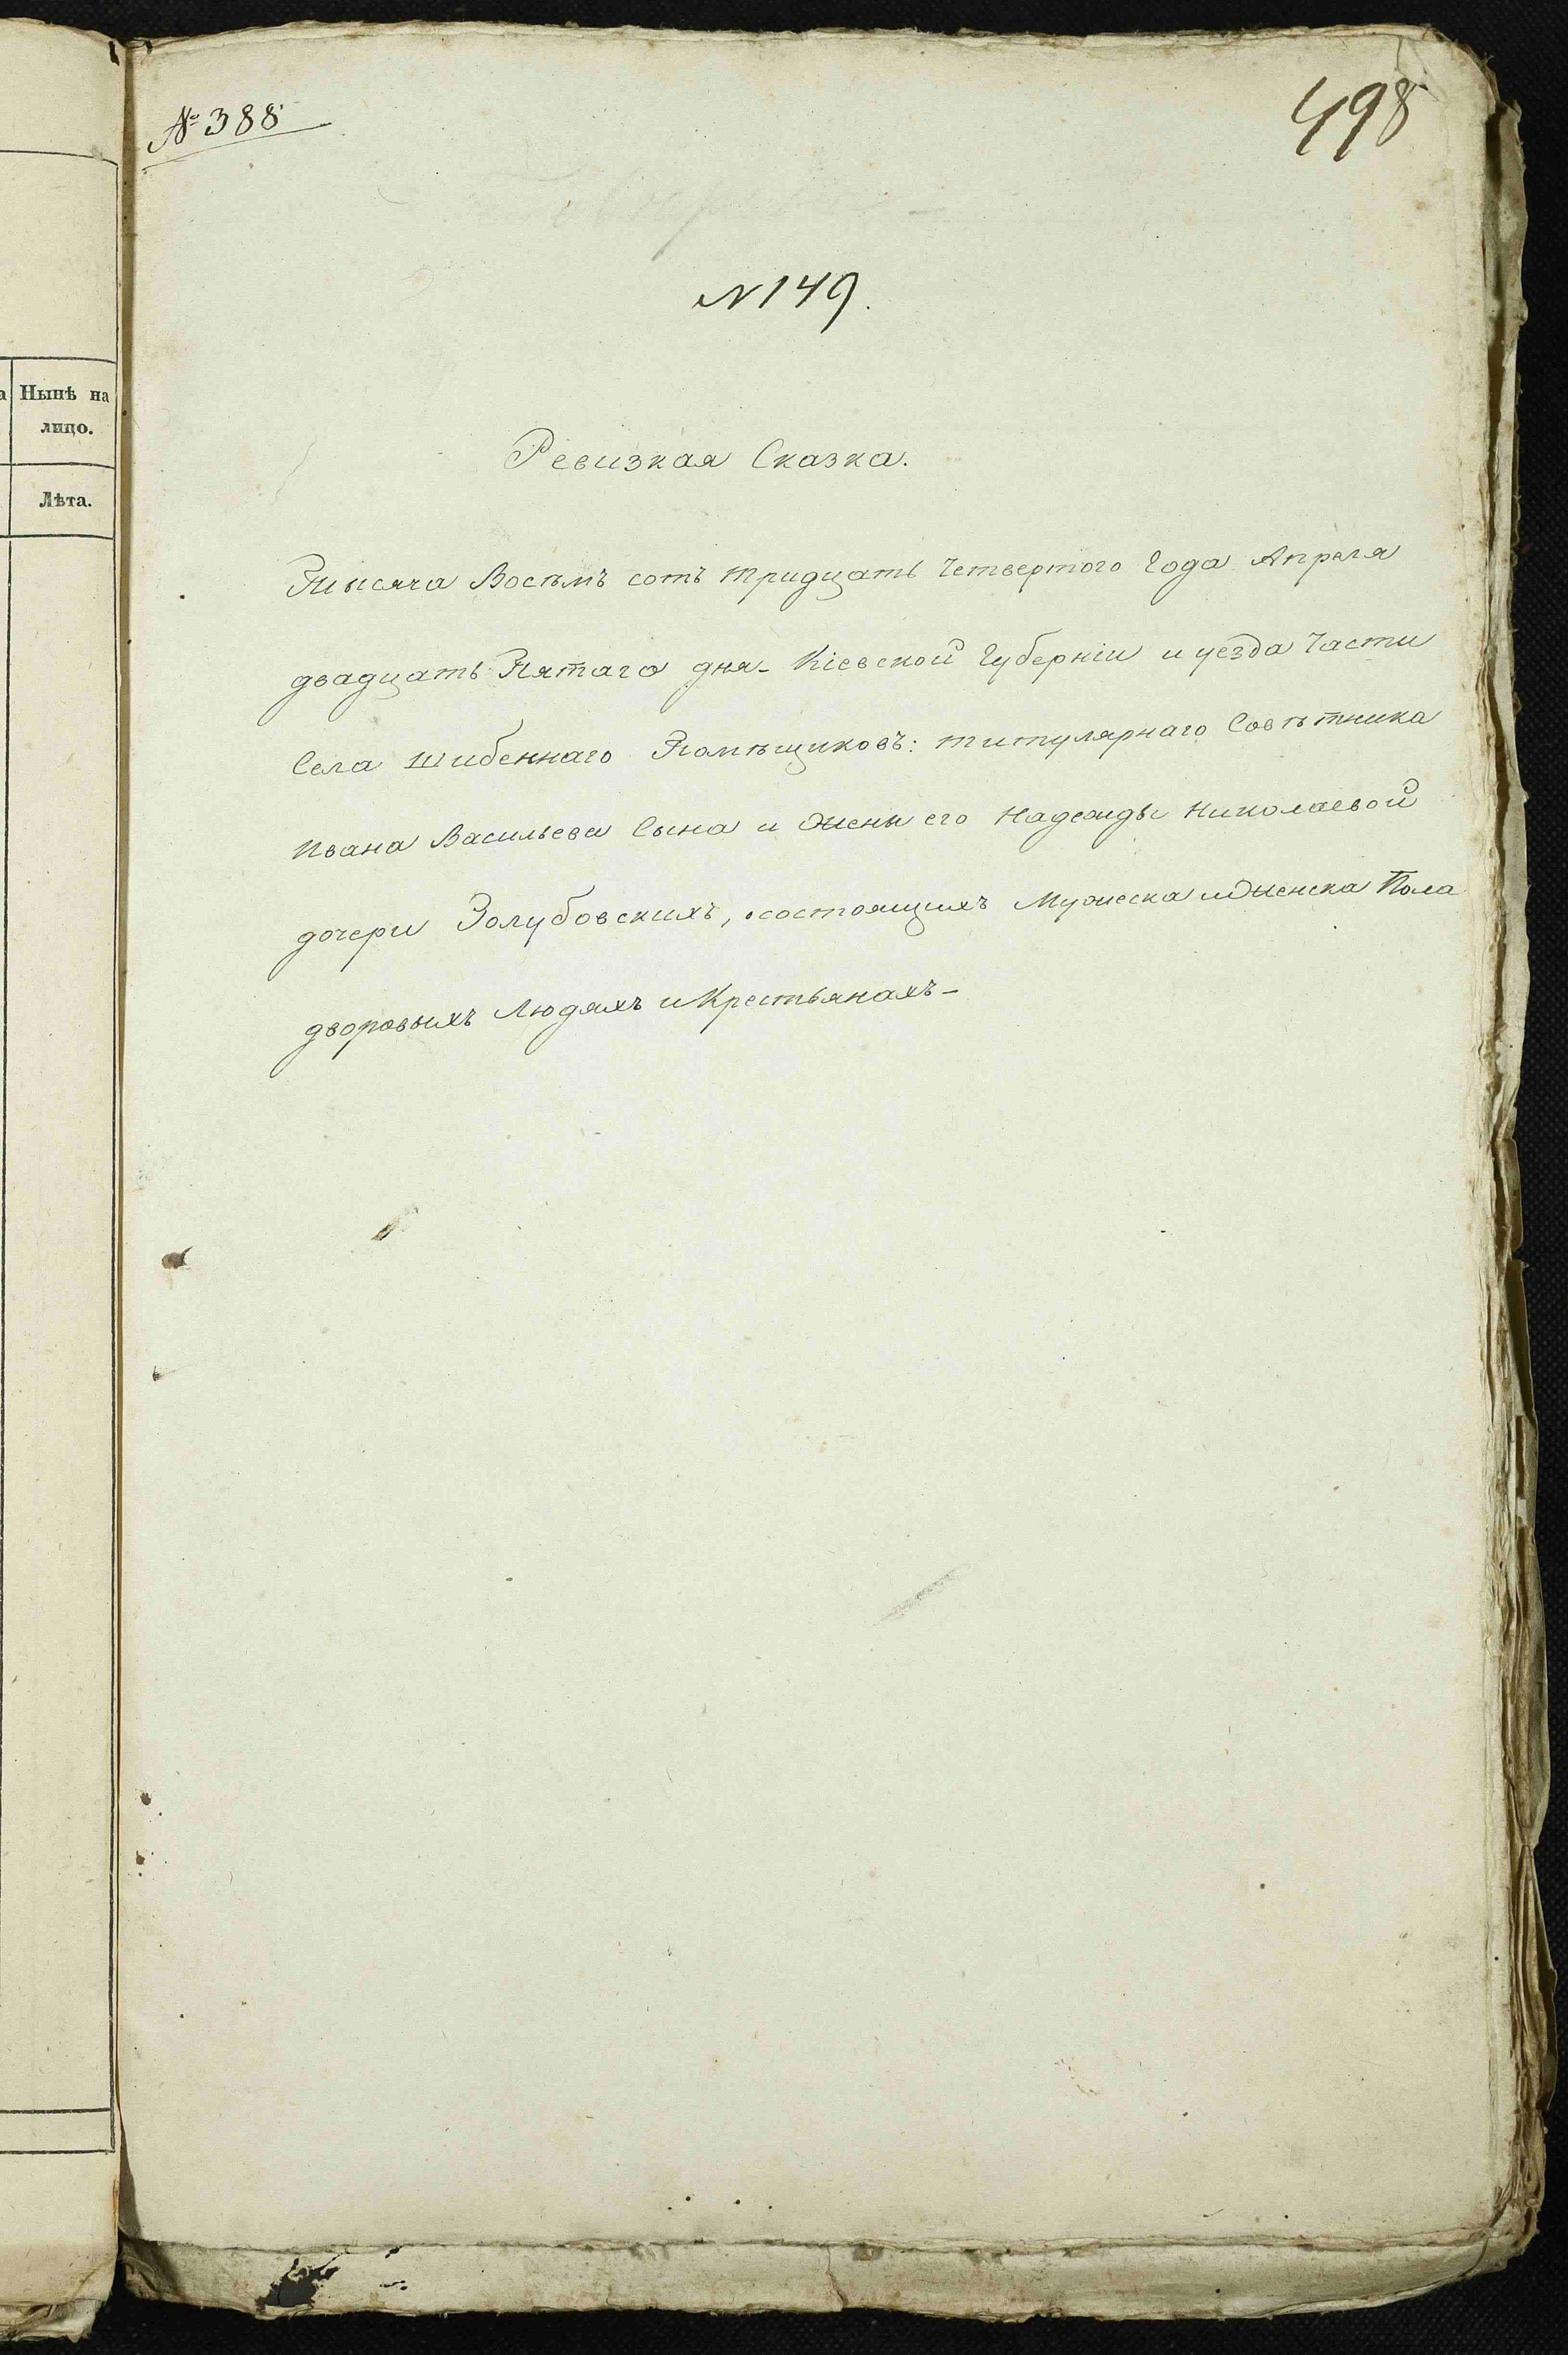 Нынѣ на
лицо.
Лѣта.
№ 388
498
N 149.
Ревизкая Сказка.
Тысяча Восѣмъ сотъ тридцать Четвертого Года Апреля
двадцать Пятаго дня - Кіевской Губерніи и уезда Части
Села Шибеннаго Помѣщиковъ: титулярнаго Совѣтника
Ивана Васильева Сына и Жены его Надежды Николаевой
дочери Голубовскихъ, о состоящихъ Мужеска и Женска Пола
дворовыхъ Людяхъ и Крестьянахъ -